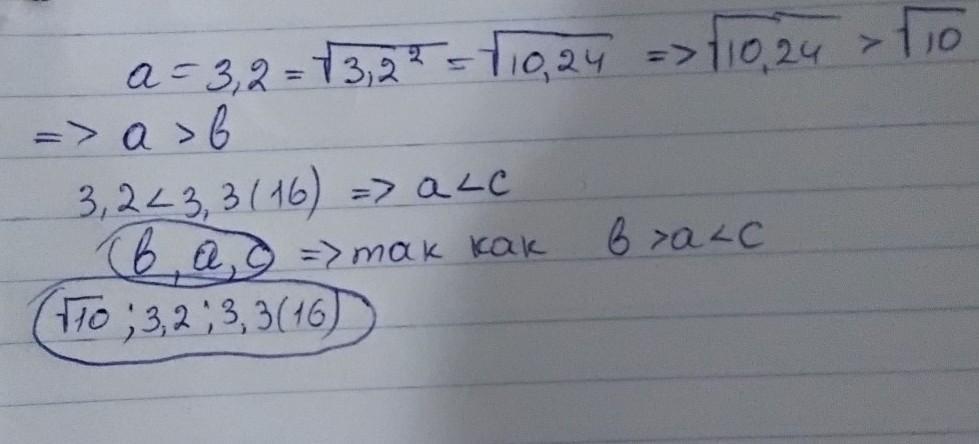 a = 3,2 = √3,2² = √10,24 => √10,24 > √10
=> a > b
3,2 < 3,3(16) => a < c
b, a, c => так как b > a < c
√10 ; 3,2 ; 3,3(16)